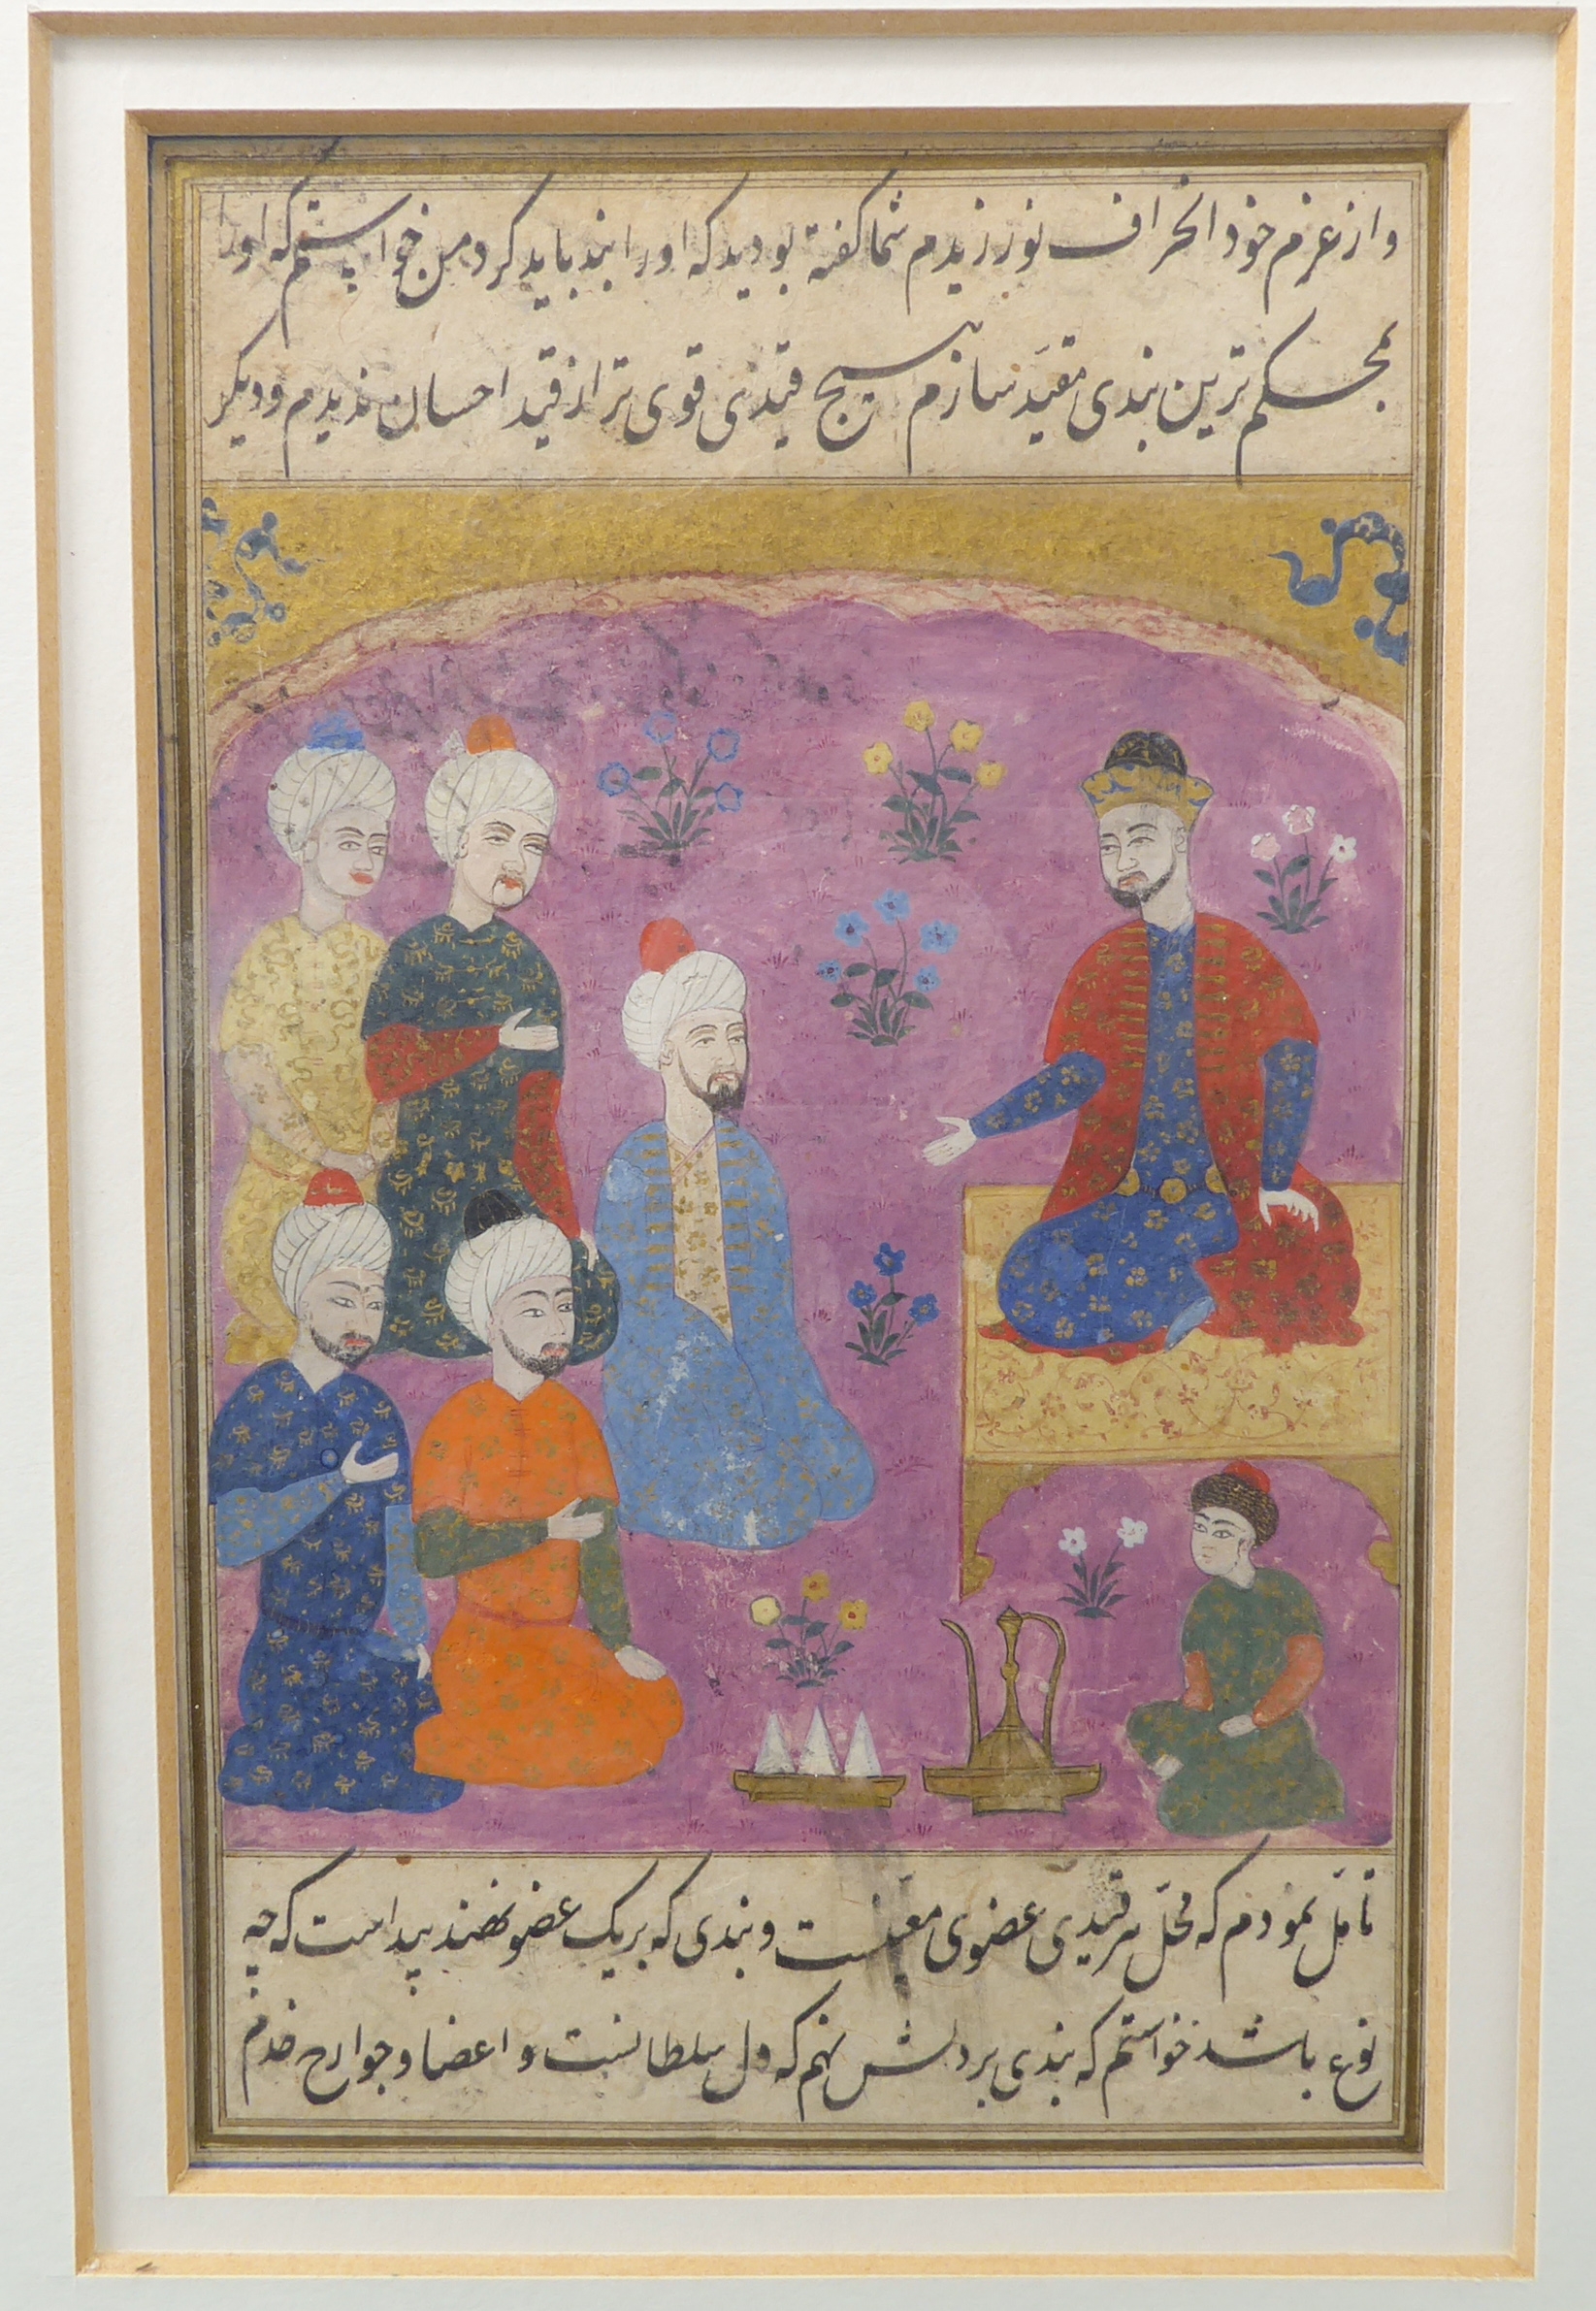 و از عزم خود انحراف نورزیدم شما گفته بودید که او را بند باید کرد من خواستم که او را
بمحکم ترین بندی مقید سازم هیچ قیدی قوی تر از قید احسان ندیدم و دیگر
تامل نمودم که محل هر قیدی عضوی معینست و بندی که بر یک عضو نهند پیداست که چه
نوع باشد خواستم که بندی بر دلش نهم که دل سلطانست و اعضا و جوارح خدم